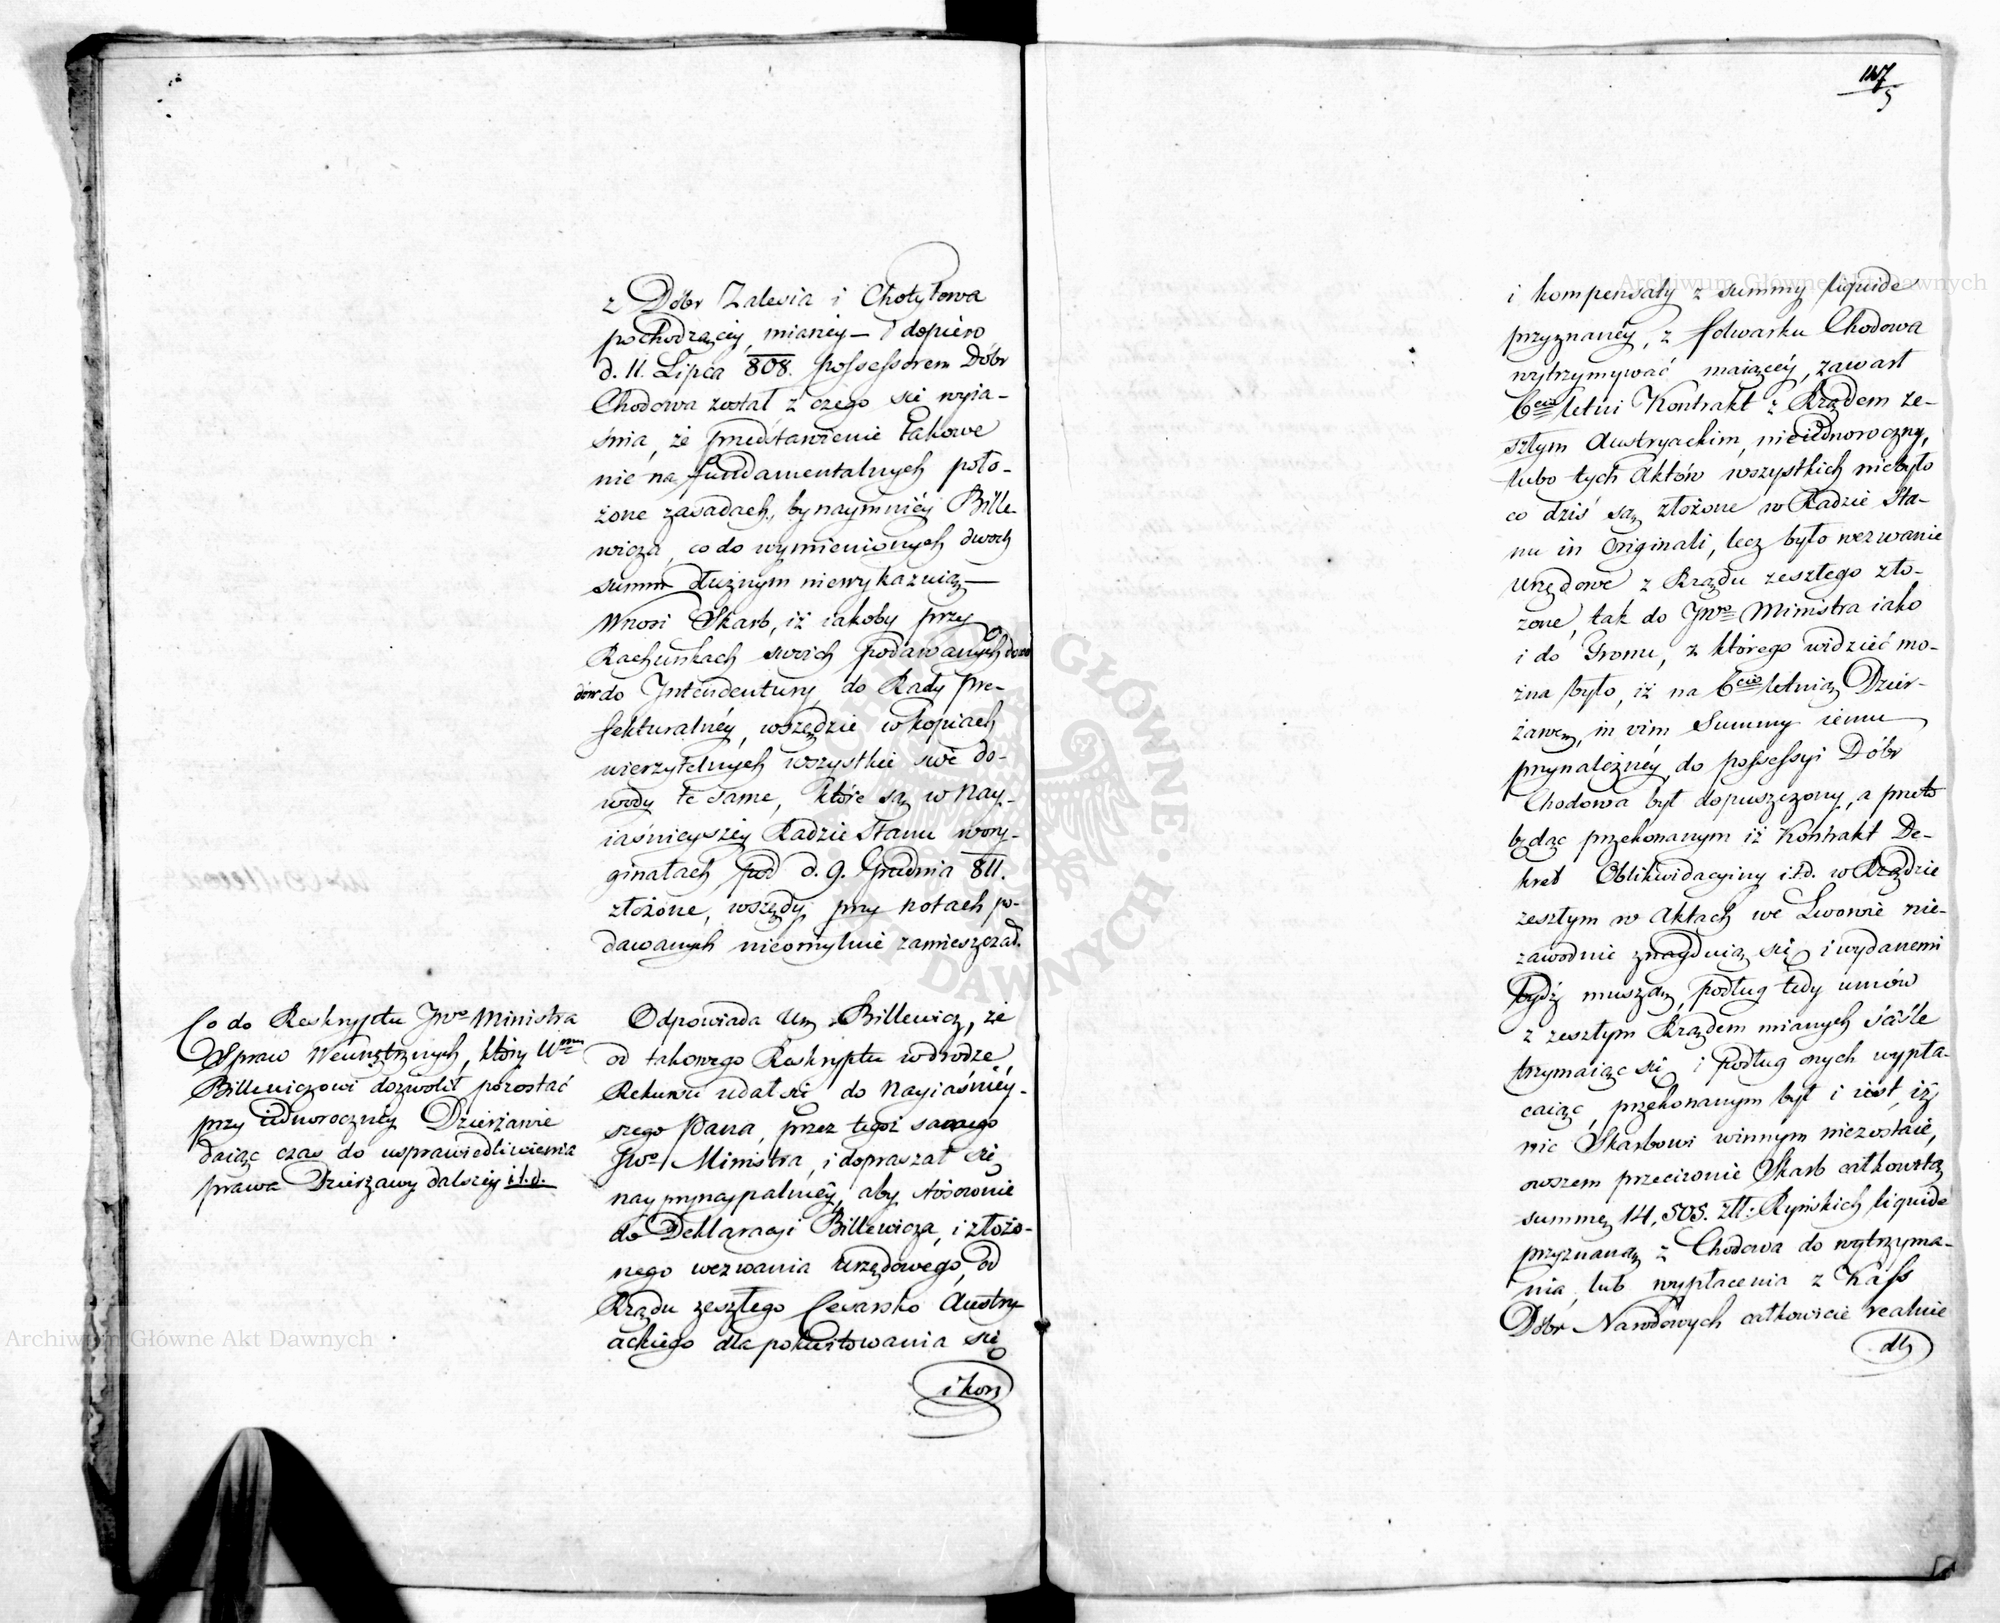 z Dóbr Zalesia i Chotyłowa
pochodzącey, mianey — i dopiero
d. 11. Lipca 808. Possessorem Dóbr
Chodowa został z czego się wyia-
śnia, że przedstawienie takowe
nie na fundamentalnych poło-
żone zasadach, bynaymniéy Bille-
wicza, co do wymienionych dwoch
summ dłużnym niewykazuią —
Wnosi Skarb, iż iakoby przy
Rachunkach swoich podawanych dowo
dów do Jntendentury, do Rady Pre-
fekturalnéy, wszędzie w kopiach
wierzytelnych wszystkie swe do-
wody te same, które są w Nay-
iaśnieyszéy Radzie Stanu w ory-
ginałach pod d. 9. Grudnia 811.
złożone, wszędy przy notach po-
dawanych nieomylnie zamieszczał.
Co do Reskryptu JWo Ministra
Spraw Wewnętrznych, który Umu
Billewiczowi dozwolił pozostać
przy iednoroczney Dzierżawie
daiąc czas do usprawiedliwienia
prawa Dzierżawy dalszéy i.t.d.
Odpowiada Ur. Billewicz, że
od takowego Reskryptu w drodze
Rekursu udał się do Nayiaśniéy-
szego Pana, przez tegoż samego
JWo Ministra, i dopraszał się
nayprynaypalniéy, aby stósownie
do Deklaracyi Billewicza, i złożo-
nego wezwania Urzędowego, od
Rządu zeszłego Cesarsko Austry-
ackiego dla pokwitowania się
i kom
147
5
i kompensaty z summy liquide
przyznanéy, z folwarku Chodowa
wytrzymywać maiącéy, zawarł
6cio letni Kontrakt z Rządem ze-
szłym Austryackim, nieiednoroczny,
lubo tych Aktów wszystkich niebyło
co dziś są złożone w Radzie Sta-
nu in Originali, lecz było wezwanie
Urzędowe z Rządu zeszłego zło-
żone, tak do JWo Ministra iako
i do Tronu, z którego widzieć mo-
żna było, iż na 6cio letnią Dzier-
żawę, in vim Summy iemu
przynależnéy, do possessyi Dóbr
Chodowa był dopuszczony, a przeto
będąc przekonanym iż Kontrakt De-
kret Oblikwidacyiny i.t.d. w Rządzie
zeszłym w Aktach we Lwowie nie-
zawodnie znayduią się i wydanemi
bydź muszą, podług tedy umów
z zeszłym Rządem mianych ściśle
trzymaiąc się i podług onych wypła-
caiąc, przekonanym był i iest, iż
nic Skarbowi winnym niezostaie,
owszem przeciwnie Skarb całkowitą
summę 14,505. Złł: Ryńskich liquide
przyznaną z Chodowa do wytrzyma-
nia, lub wypłacenia z Kass
Dóbr Narodowych całkowicie realnie
Archiwum Główne Akt Dawnych
Archiwum Główne Akt Dawnych